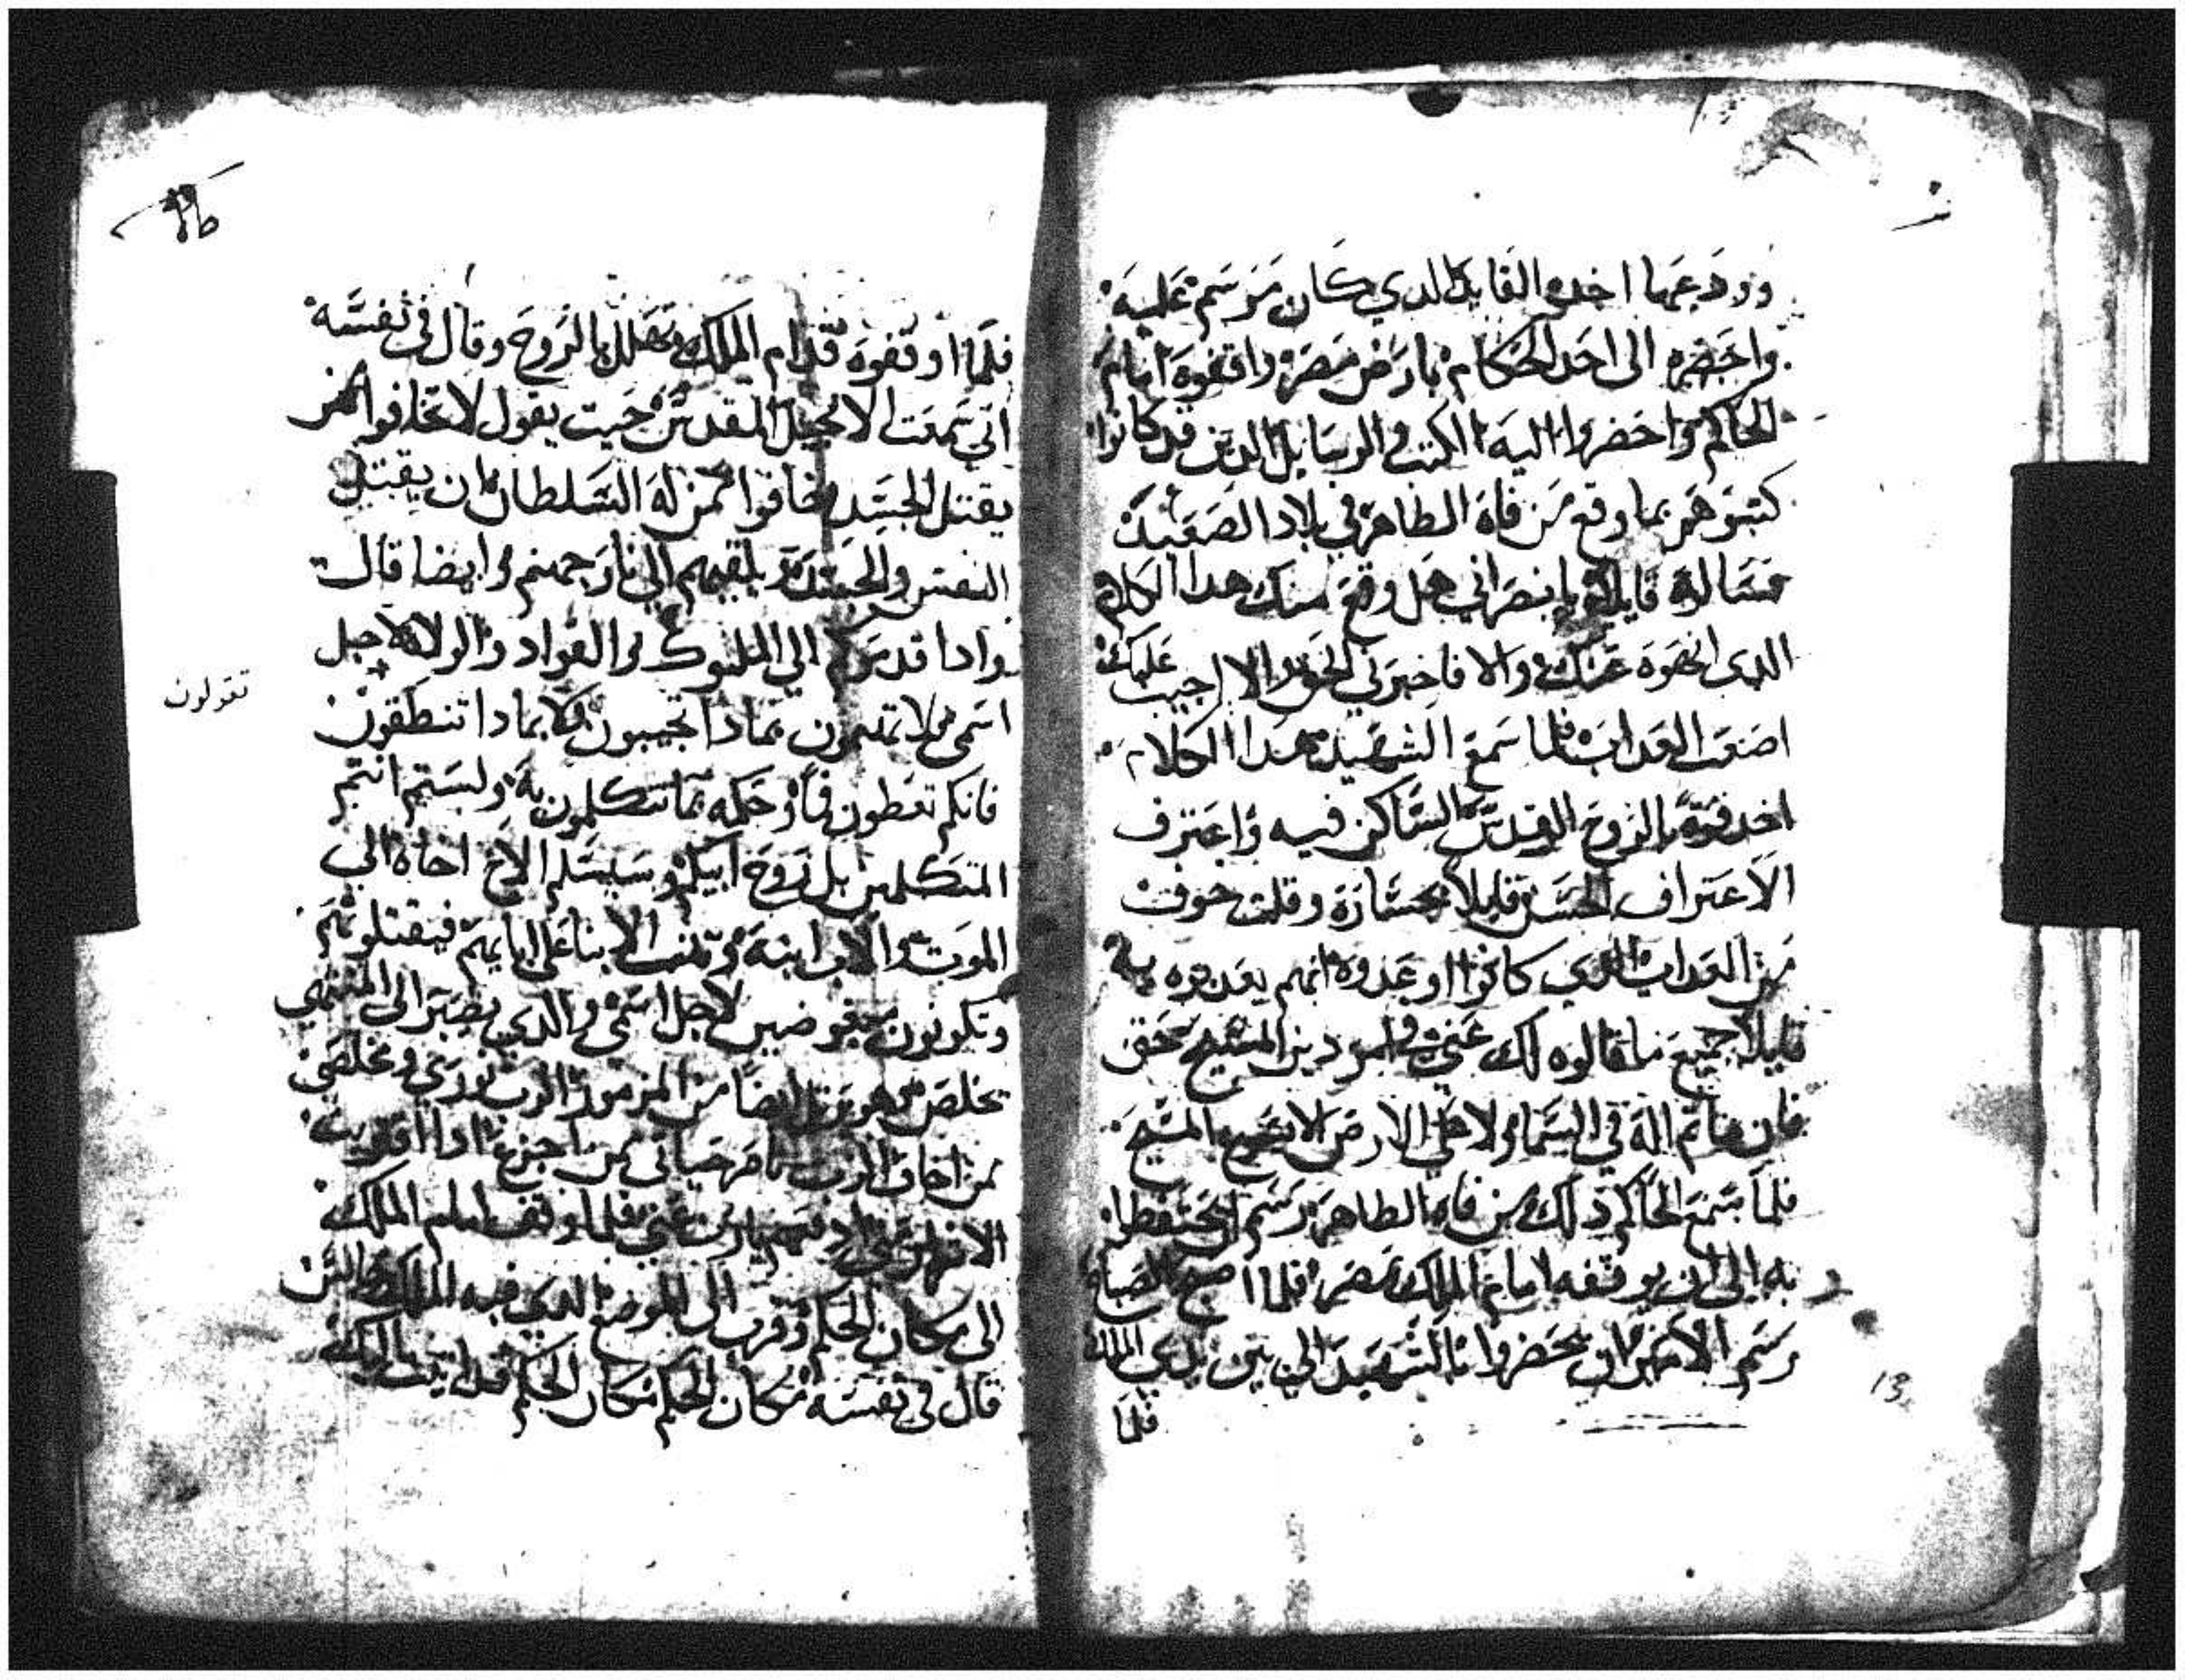 وودعهما اخده القايد الدي كان مرسم عليه
واحضره الى احد الحكام بارض مصر واوقفوه امام
الحاكم واحضروا اليه الكتب والرسايل الدين قد كانوا
كتبوهم بما وقع من فاه الطاهر في بلاد الصعيد
فساله قايلا يا نصراني هل وقع منك هدا الكلام
الدي انهوه عنك والا فاخبرني الحق والا اجيب عليك
اصعب العداب فلما سمع الشهيد هدا الكلام
اخد قوة بالروح القدس الساكن فيه واعترف
الاعتراف الحسن قايلا بجسارة وقلت خوف
من العداب الدي كانوا اوعدوه انهم يعدبوه به
قايلا جميع ما قالوه لك عني دين المسيح بحق
فان ما تم اله في السما ولا على الارض الا المسيح
فلما سمع الحاكم دلك من فاه الطاهر رسم ان يحتفظوا
به الى ان يوقفه امام الملك بمصر فلما اصبح الصباح
رسم الامير ان يحضروا بالشهيد الى بين يدي الملك
فلما
13
فلما اوقفوه قدام الملك تهلل بالروح وقال في نفسه
اني سمعت الانجيل المقدس حيت يقول لا تخافوا ممن
يقتل الجسد خافوا ممن له السلطان ان يقتل
النفس والجسد ويلقيهم الى نار جهنم وايضا قال
وادا قدمتم الى الملوك والقواد والولاه لاجل
اسمي لا تهتمون بمادا تجيبون ولا بمادا تنطقون
تقولون
فانكم تعطون في حكمه ما تتكلمون به ولستم انتم
المتكلمين بل روح ابيكم وسيسلم الاخ اخاه الى
الموت والاب ابنه وتتب الابنا على ابايهم فيقتلونهم
وتكونون مبغوضين لاجل اسمي والدي يصبر الى المنتهى
يخلص ايضا من المزمور الرب نوري ومخلصي
ممن اخاف الرب ناصر حياتي ممن اجزع ادا اقترب
الاشرار فلما وقف امام الملك
الى مكان الحكم وقرب الى الموضع الدي فيه الملك جالس
قال في نفسه مكان الحكم مكان الحكم قد اتيت اليك